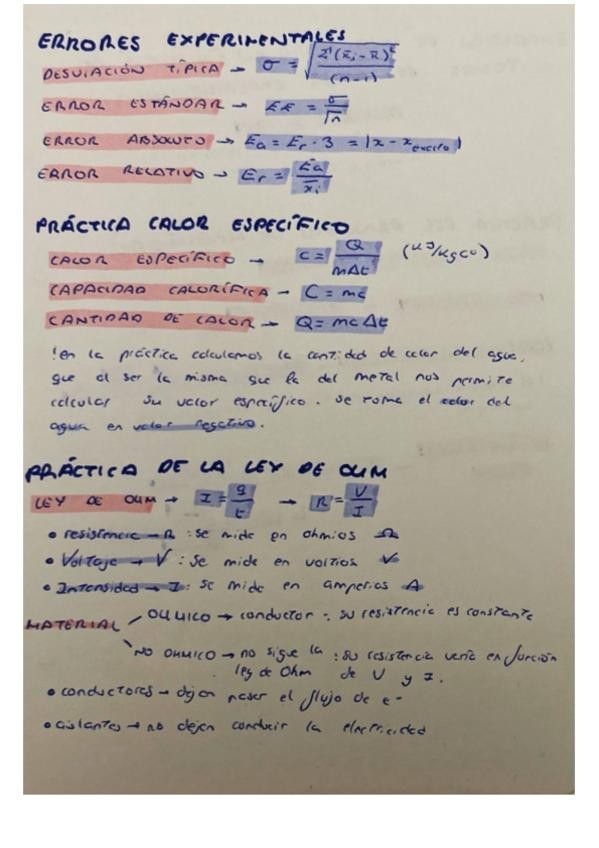 ERRORES EXPERIMENTALES
DESVIACIÓN TÍPICA → σ = √(Σ(x̄i - x̄)² / (n-1))
ERROR ESTÁNDAR → EE = σ/√n
ERROR ABSOLUTO → Ea = Er · 3 = |x - xexacto|
ERROR RELATIVO → Er = Ea/x̄i
PRÁCTICA CALOR ESPECÍFICO
CALOR ESPECÍFICO → c = Q/mΔt (KJ/KgCº)
CAPACIDAD CALORÍFICA → C = mc
CANTIDAD DE CALOR → Q = mcΔt
!en la práctica calculamos la cantidad de calor del agua,
que al ser la misma que la del metal nos permite
calcular su valor específico. se toma el calor del
agua en valor negativo.
PRÁCTICA DE LA LEY DE OHM
LEY DE OHM → I = q/t → R = V/I
• resistencia → R : se mide en ohmios Ω
• Voltaje → V : se mide en voltios V
• Intensidad → I : se mide en amperios A
MATERIAL / OHMICO → conductor : su resistencia es constante
\ NO OHMICO → no sigue la : su resistencia varía en función
ley de Ohm de V y I.
• conductores → dejan pasar el flujo de e-
• aislantes → no dejan conducir la electricidad